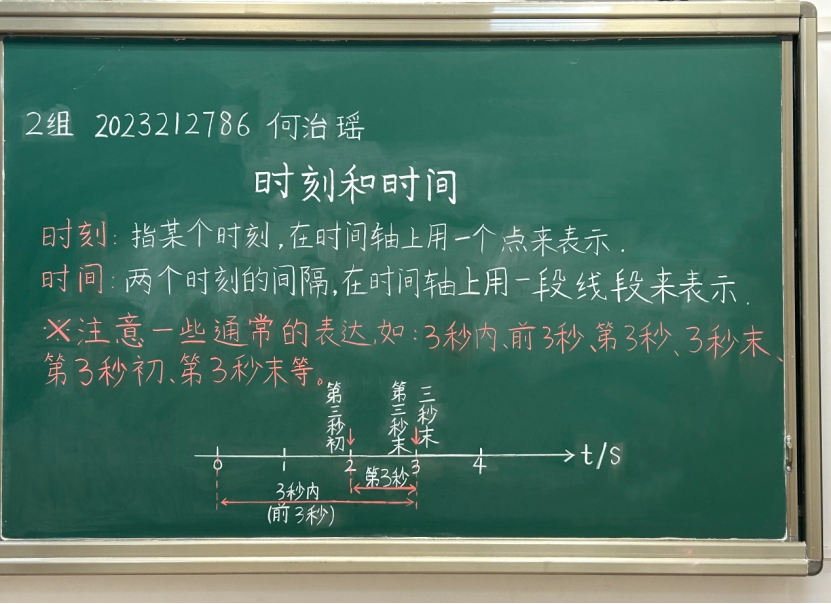 2组 2023212786 何治瑶
时刻和时间
时刻：指某个时刻,在时间轴上用一个点来表示.
时间：两个时刻的间隔,在时间轴上用一段线段来表示.
※注意一些通常的表达,如：3秒内、前3秒、第3秒、3秒末、
第3秒初、第3秒末等。
第三秒初
第三秒末
三秒末
0 1 2 3 4 t/s
第3秒
3秒内
(前3秒)